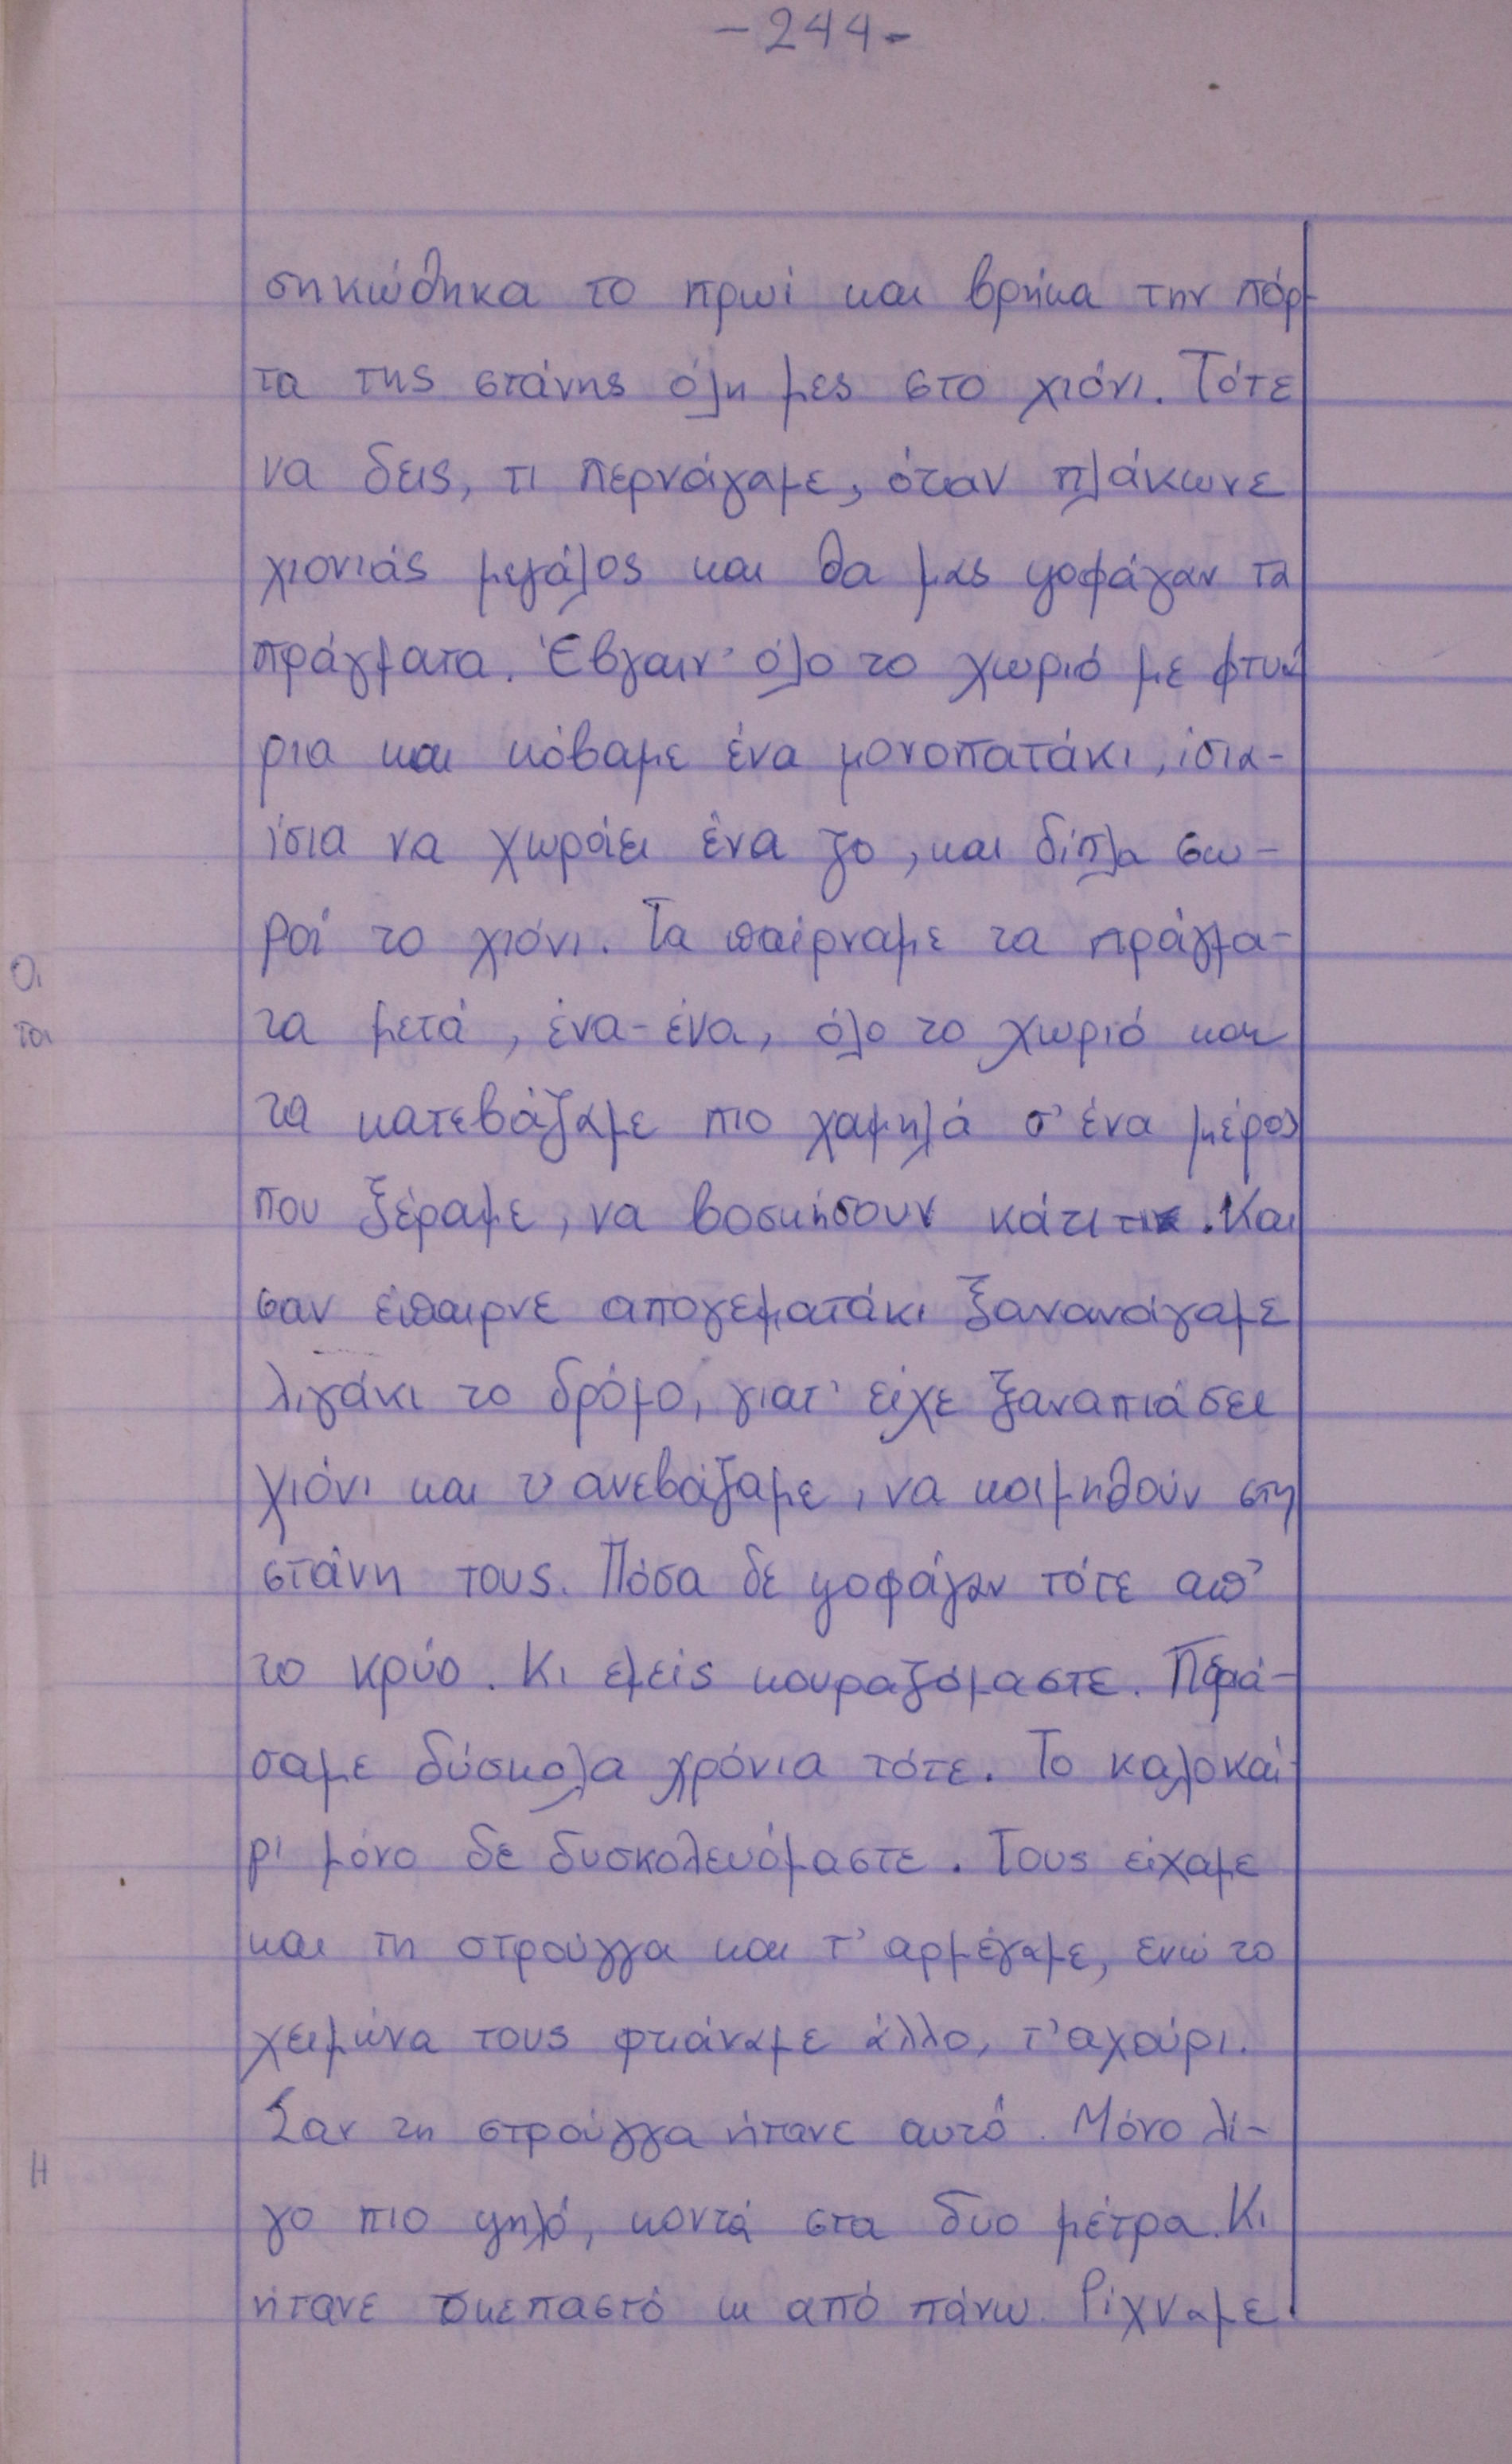 -244-
σηκώθηκα το πρωί και βρήκα την πόρ-
τα της στάνης όλη μες στο χιόνι. Τότε
να δεις, τι περνάγαμε, όταν πλάκωνε
χιονιάς μεγάλος και θα μας ψοφάγαν τα
πράγματα. Έβγαιν' όλο το χωριό με φτυά
ρια και κόβαμε ένα μονοπατάκι, ίσια-
ίσια να χωράει ένα ζο, και δίπλα σω-
ροί το χιόνι. Τα παίρναμε τα πράγμα-
τα μετά, ένα-ένα, όλο το χωριό και
τα κατεβάζαμε πιο χαμηλά σ' ένα μέρος
που ξέραμε, να βοσκήσουν κάτι τις. Και
σαν έπαιρνε απογεματάκι ξανανοίγαμε
λιγάκι το δρόμο, γιατ' είχε ξαναπιάσει
χιόνι και τ' ανεβάζαμε, να κοιμηθούν στη
στάνη τους. Πόσα δε ψοφάγαν τότε απ'
το κρύο. Κι εμείς κουραζόμαστε. Περά-
σαμε δύσκολα χρόνια τότε. Το καλοκαί-
ρι μόνο δε δυσκολευόμαστε. Τους είχαμε
και τη στρούγγα και τ' αρμέγαμε, ενώ το
χειμώνα τους φκιάναμε άλλο, τ' αχούρι.
Σαν τη στρούγγα ήτανε αυτό. Μόνο λί-
γο πιο ψηλό, κοντά στα δυο μέτρα. Κι
ήτανε σκεπαστό κι από πάνω. Ρίχναμε
Οι
τα
Η